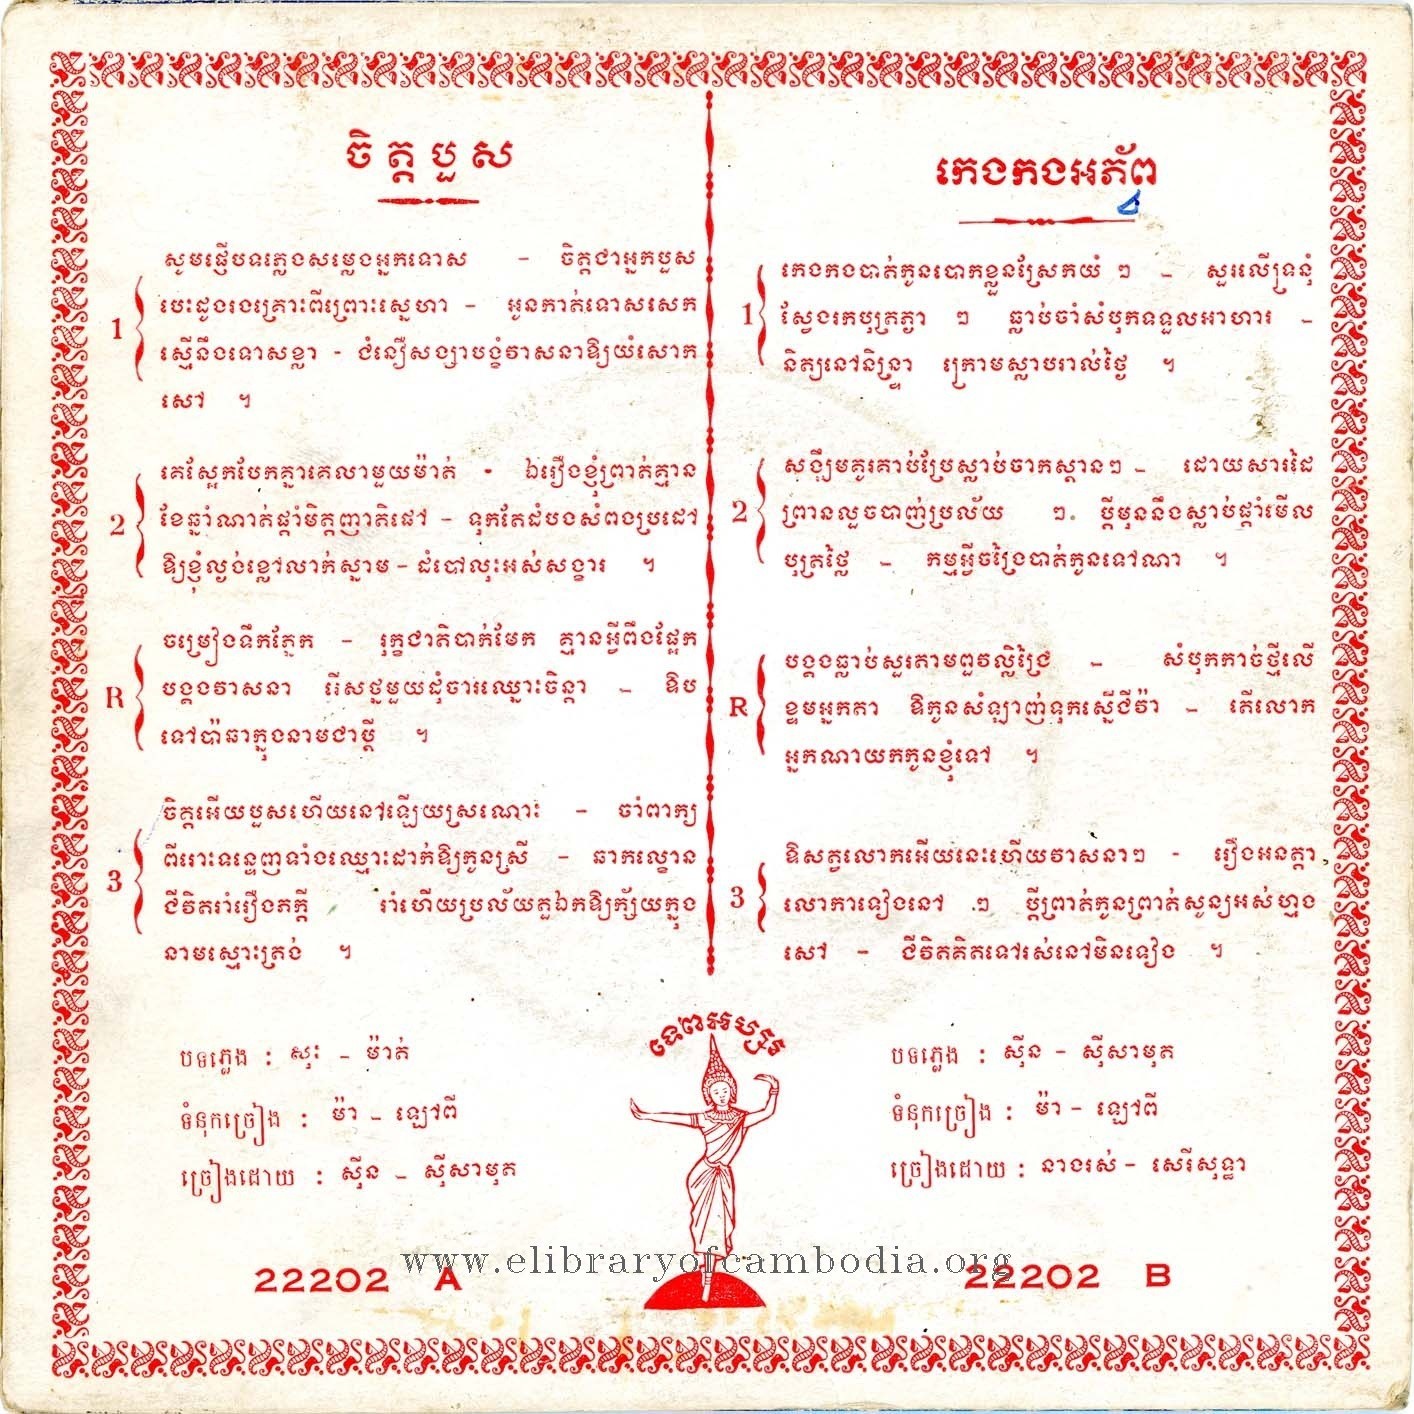 ចិត្តបួស
1
សូមផ្ញើបទភ្លេងសម្លេងអ្នកទោស – ចិត្តជាអ្នកបួស
បេះដូងរងគ្រោះពីព្រោះស្នេហា – អូនកាត់ទោសសេក
ស្មើនឹងទោសខ្លា - ជំនឿសង្សាបង្ខំវាសនាឱ្យយំសោក
សៅ ។
2
គេស្អែកបែកគ្នាគេលាមួយម៉ាត់ - ឯរឿងខ្ញុំព្រាត់គ្មាន
ខែឆ្នាំណាត់ផ្ដាំមិត្តញាតិផៅ – ទុកតែដំបងសំពងប្រដៅ
ឱ្យខ្ញុំល្ងង់ខ្លៅលាក់ស្នាម – ដំបៅលុះអស់សង្ខារ ។
R
ចម្រៀងទឹកភ្នែក – រុក្ខជាតិបាក់មែក គ្មានអ្វីពឹងផ្អែក
បង្គងវាសនា រើសថ្មមួយដុំចារឈ្មោះចិន្ដា – ឱប
ទៅប៉ាឆាក្នុងនាមជាប្ដី ។
3
ចិត្តអើយបួសហើយនៅឡើយស្រណោះ – ចាំពាក្យ
ពីរោះទន្ទេញទាំងឈ្មោះដាក់ឱ្យកូនស្រី – ឆាកល្ខោន
ជីវិតរាំរឿងភក្ដី រាំហើយប្រល័យតួឯកឱ្យក្ស័យក្នុង
នាមស្មោះត្រង់ ។
បទភ្លេង : សុះ – ម៉ាត់
ទំនុកច្រៀង : ម៉ា – ឡៅពី
ច្រៀងដោយ : ស៊ីន – ស៊ីសាមុត
22202 A
កេងកងអភ័ព្វ
1
កេងកងបាត់កូនបោកខ្លួនស្រែកយំ ៗ – សួរលើទ្រនុំ
ស្វែងរកបុត្រភ្ងា ៗ ធ្លាប់ចាំសំបុកទទួលអាហារ –
និត្យនៅនិន្ទ្រា ក្រោមស្លាបរាល់ថ្ងៃ ។
2
សង្ឃឹមគូរគាប់ប្រែស្លាប់ចាកស្ថាន ៗ – ដោយសារដៃ
ព្រានលួចបាញ់ប្រល័យ ៗ ប្ដីមុននឹងស្លាប់ផ្ដាំមើល
បុត្រថ្លៃ – កម្មអ្វីចង្រៃបាត់កូនទៅណា ។
R
បង្គងធ្លាប់សួរតាមពួវល្លិជ្រៃ – សំបុកកាច់ថ្មីលើ
ខ្ទមអ្នកតា ឱកូនសំឡាញ់ទុកស្មើជីវ៉ា – តើលោក
អ្នកណាយកកូនខ្ញុំទៅ ។
3
ឱសត្វលោកអើយនេះហើយវាសនា ៗ - រឿងអនត្តា
លោកាទៀងនៅ ៗ ប្ដីព្រាត់កូនព្រាត់សូន្យអស់ហ្មង
សៅ – ជីវិតគិតទៅរស់នៅមិនទៀង ។
បទភ្លេង : ស៊ីន – ស៊ីសាមុត
ទំនុកច្រៀង : ម៉ា – ឡៅពី
ច្រៀងដោយ : នាងរស់ – សេរីសុទ្ធា
22202 B
ទេពអប្សរ
www.elibraryofcambodia.org